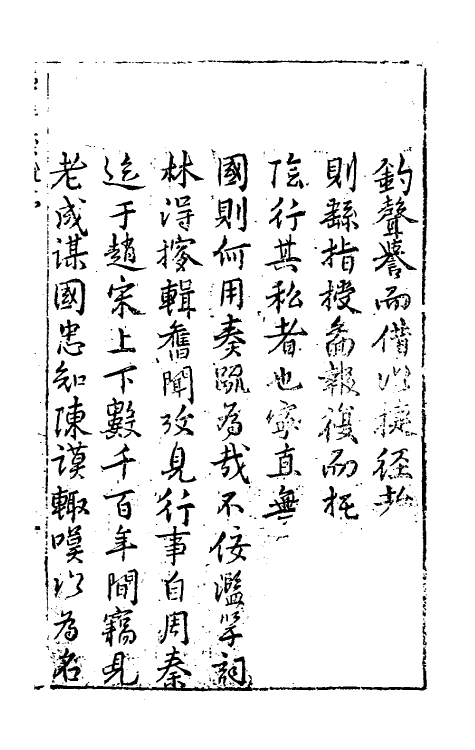 釣聲譽而借以捷徑於
則繇指授而報復而托
陰行其私者也寧直無
國則何用奏䟽為哉不佞濫竽詞
林得搜輯舊聞攷見行事自周秦
迄于趙宋上下數千百年間竊見
老成謀國忠知陳謨輙嘆以為名